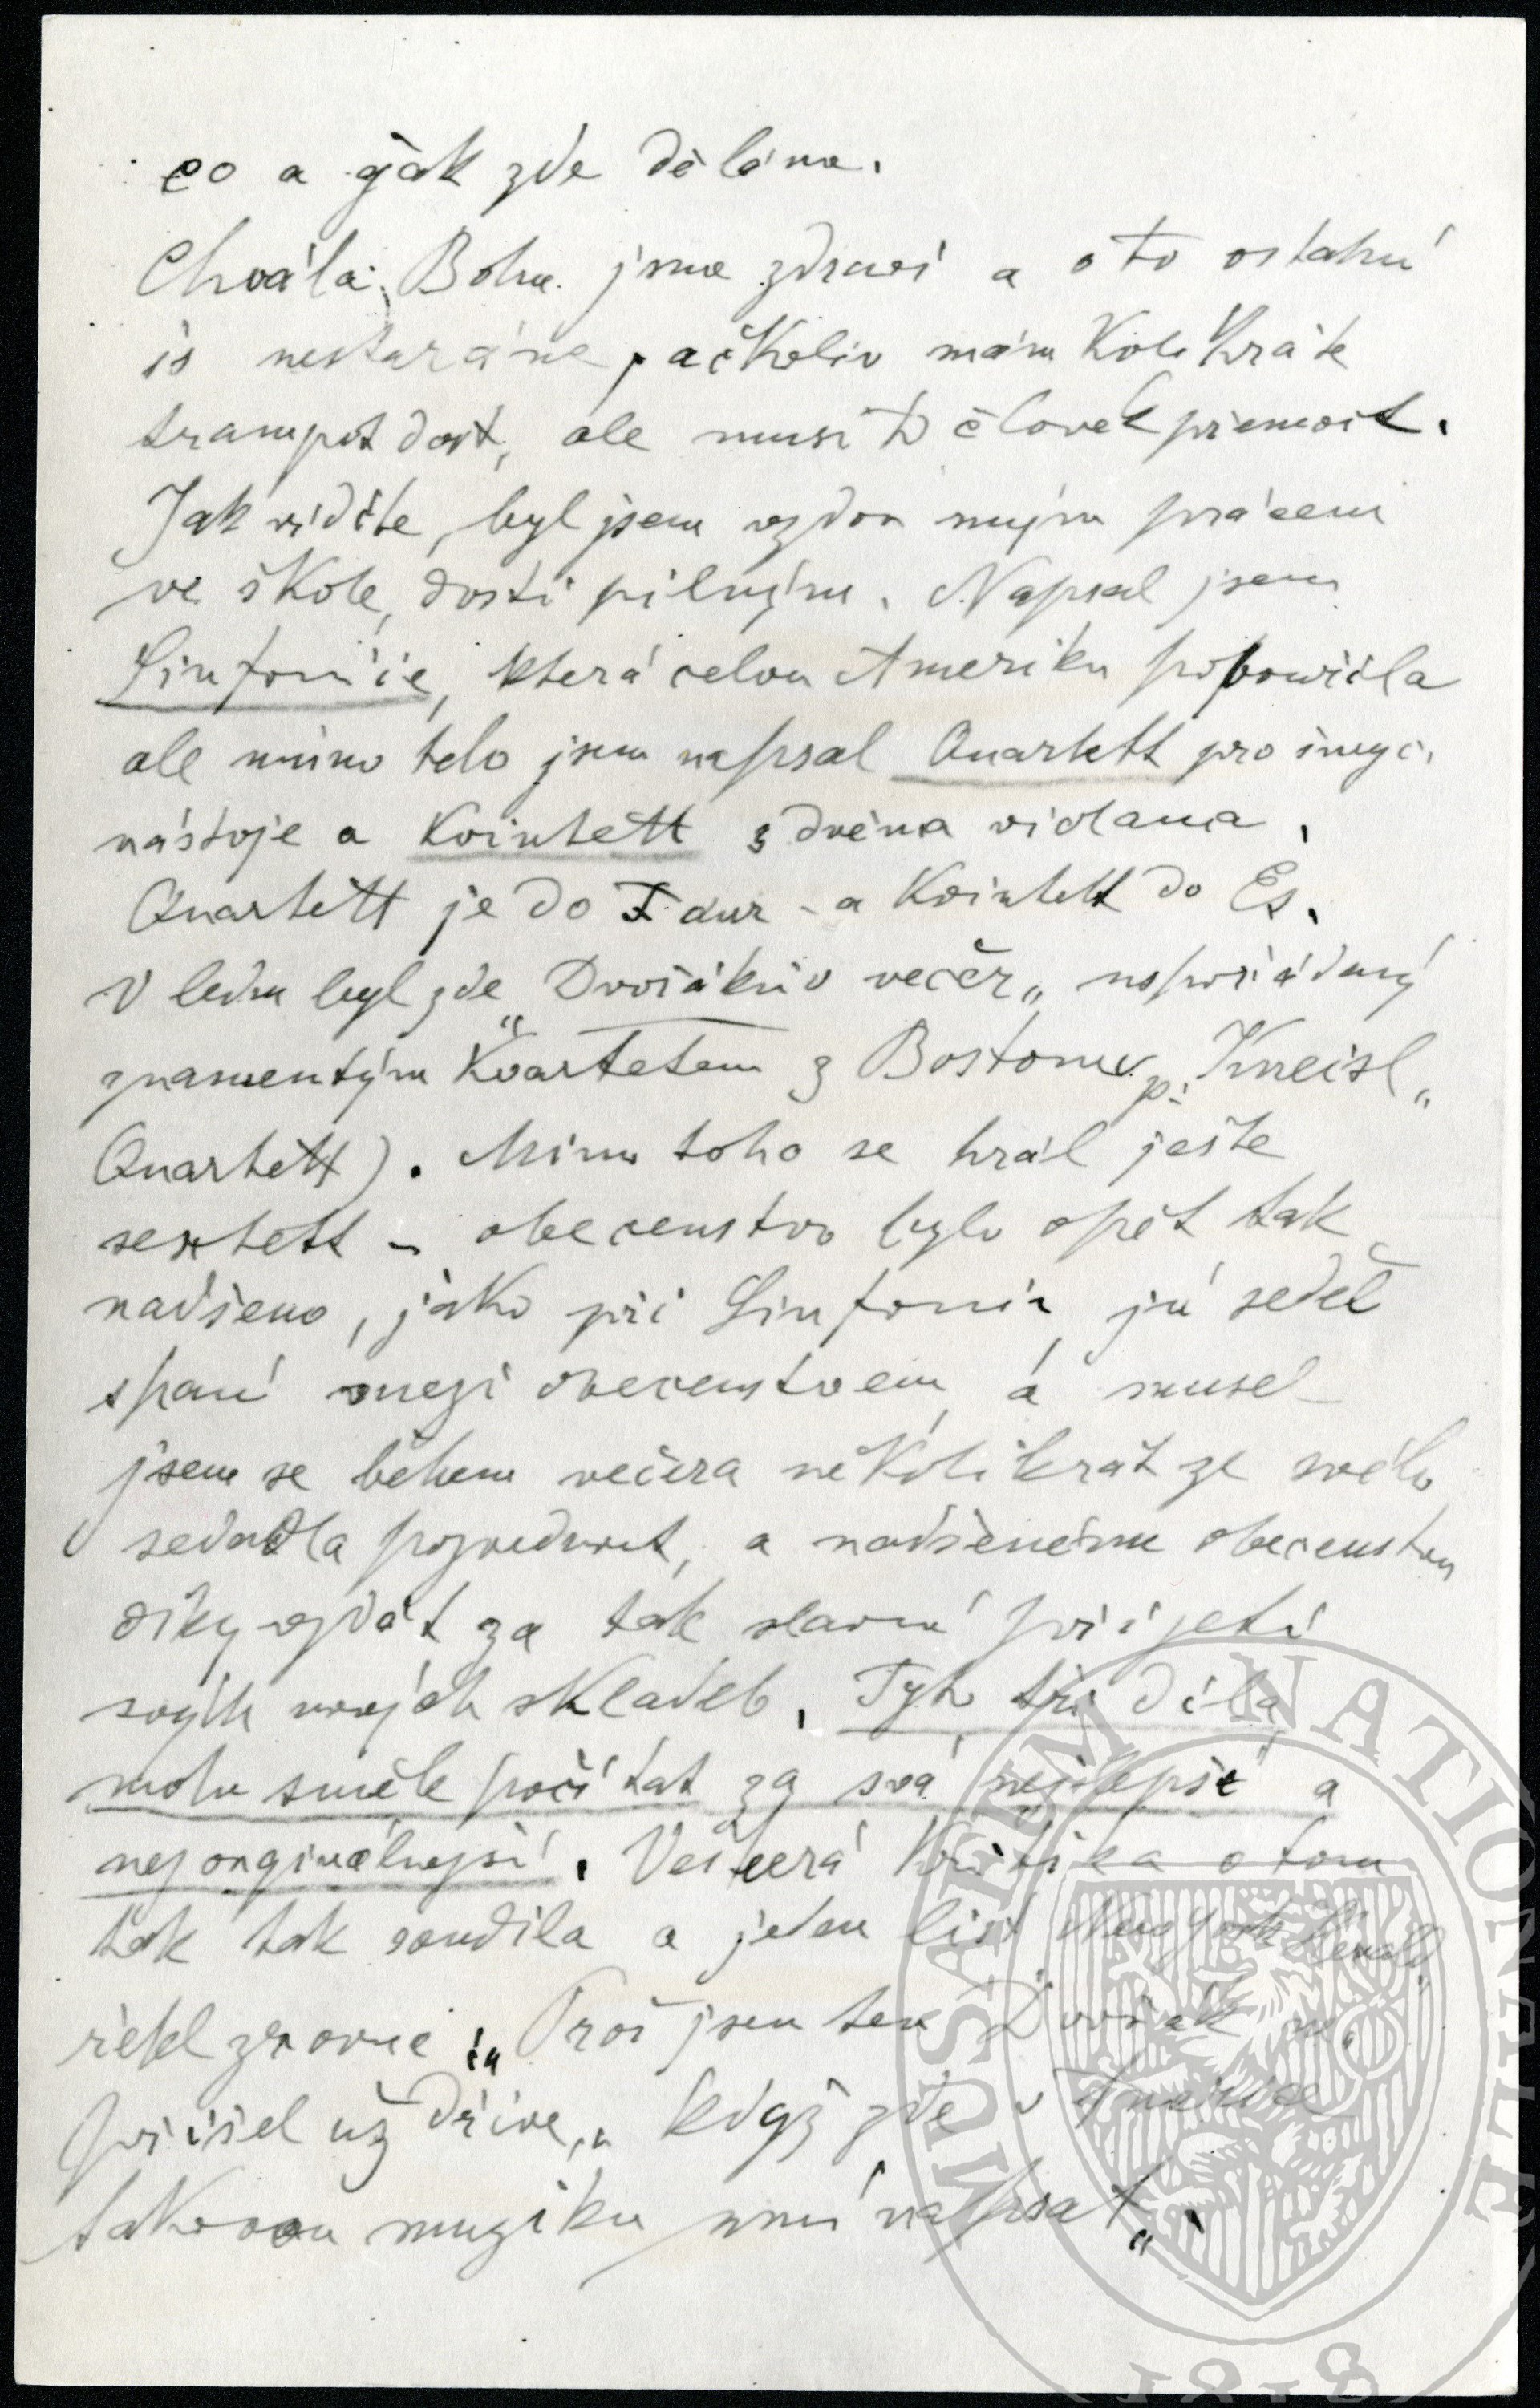 co a jak zde děláme.
Chvála Bohu jsme zdraví a o to ostatní
is nestaráme, ačkoliv mám kolikráte
trampot dost, ale musí to človek přenosit.
Jak vidíte, byl jsem vzdor mým pracem
ve škole, dosti pilným. Napsal jsem
Sinfonii, která celou Ameriku pobouřila
ale mimo toho jsem napsal Quartett pro smyč.
nástroje a Kvintett s dvěma violama.
Quartett je do F dur - a Kvintett do Es.
V lednu byl zde „Dvořákův večer„ uspořádaný
znamenitým Kvartetem z Bostonu p. Kneisl„
Quartett). Mimo toho se hrál ješte
sextett - obecenstvo bylo opět tak
nadšeno, jako při Sinfonii, já seděl
s paní mezi obecenstvem, a musel
jsem se během večera několikrát ze svého
sedadla pozvednout, a nadšenému obecenstvu
díky vzdát za tak slavné přijetí
svých nových skladeb. Tyto tři díla
mohu směle počítat za svá nejlepší a
nejoriginálnejší. Veškerá kritika o tom
tak tak soudila a jeden list New York Herald
řekl zrovna: „Proč jsen ten Dvořák ne
přišel už dříve„, když zde v Americe
takovou muziku umí napsat„.
MUSAEUM NATIONALE
1818